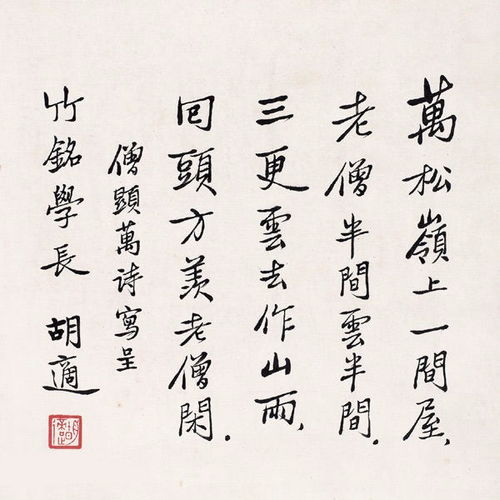 萬松嶺上一間屋、
老僧半間雲半間．
三更雲去作山雨、
回頭方羨老僧閑．
僧顯萬詩寫呈
竹銘學長 胡適